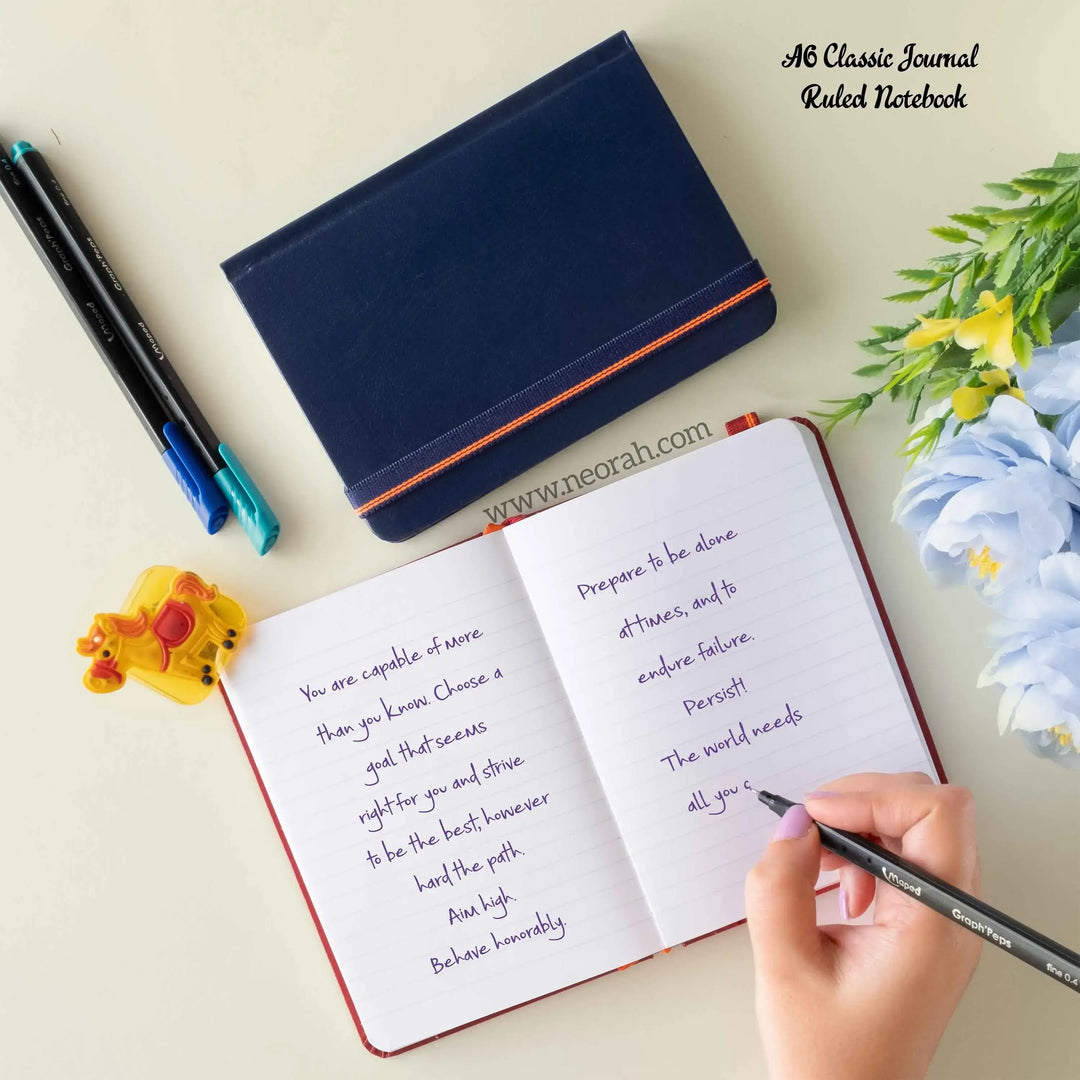 A6 Classic Journal
Ruled Notebook
www.neorah.com
Graph'Peps
Maped
Graph'Peps
Maped
You are capable of more
than you know. Choose a
goal that seems
right for you and strive
to be the best, however
hard the path.
Aim high.
Behave honorably.
Prepare to be alone
at times, and to
endure failure.
Persist!
The world needs
all you c
Maped
Graph'Peps
fine 0.4